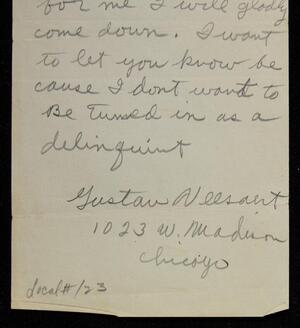 for me I will gladly
come down. I want
to let you know be
cause I dont want to
Be turned in as a
delinquint
Gustav
1023 W. Madison
Chicago
Local # 123